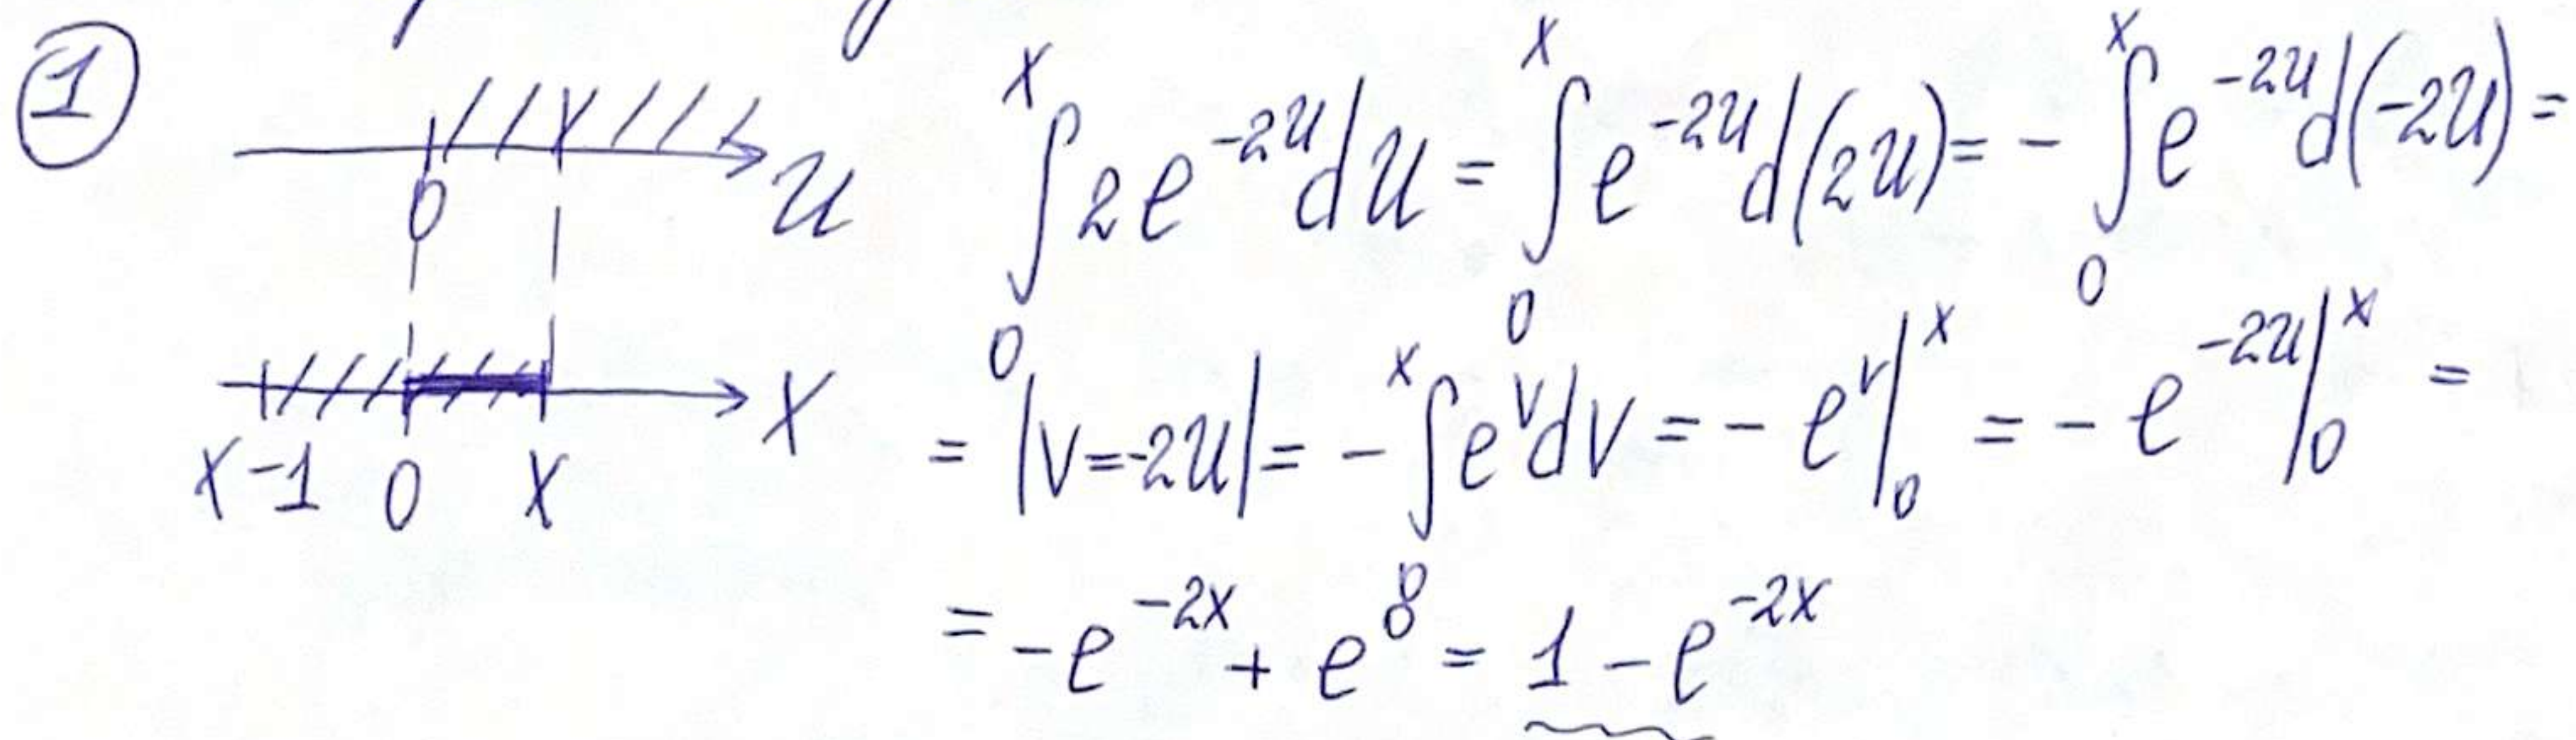 ① 0 u ∫₀ˣ 2e^{-2u}du = ∫₀ˣ e^{-2u}d(2u) = - ∫₀ˣ e^{-2u}d(-2u) =
x-1 0 x X = |v=-2u| = - ˣ∫e^v dv = - e^v|₀ˣ = - e^{-2u}|₀ˣ =
= -e^{-2x} + e^0 = 1 - e^{-2x}